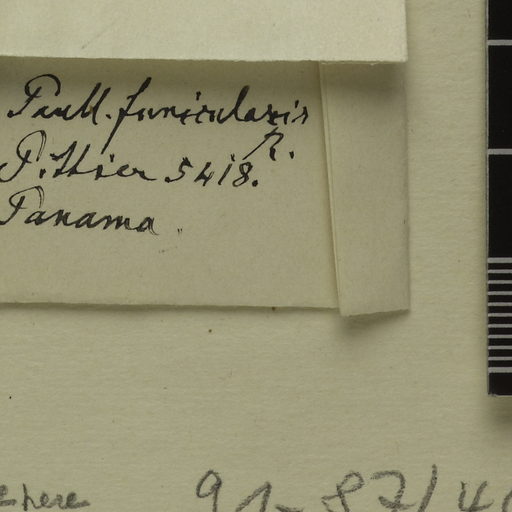 Paull. funicularis
R.
Pittier 5418.
Panama.
here